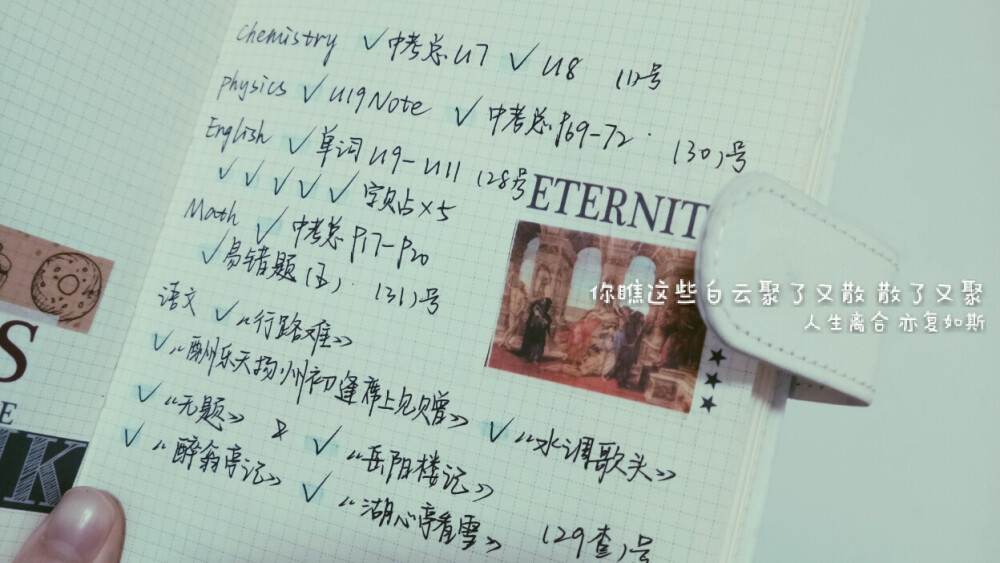 Chemistry ✓中考总U7 ✓U8 (1)号
physics ✓U19Note ✓中考总p69-72. (30)号
English ✓单词U9-U11 (28号
✓✓✓✓✓字贝占×5
Math ✓中考总P17-P20
✓易错题(五). (31)号
语文 ✓《行路难》
✓《酬州乐天扬州初逢席上见赠》 ✓《水调歌头》
✓《无题》 & ✓《岳阳楼记》
✓《醉翁亭记》 ✓《湖心亭看雪》 (29查)号
ETERNIT
你瞧这些白云聚了又散 散了又聚
人生离合 亦复如斯
S
E
K